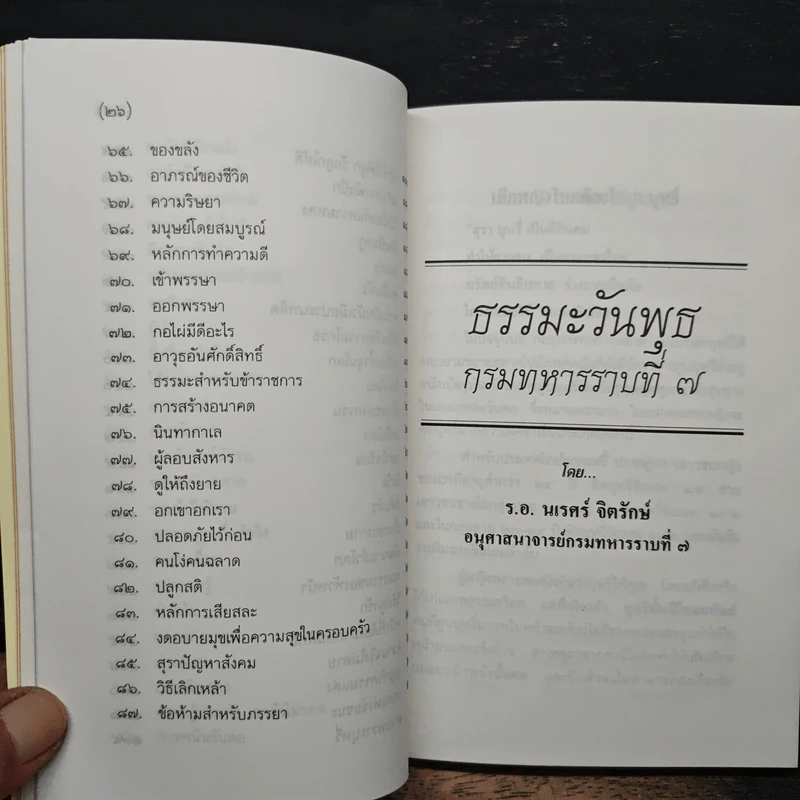 (๒๖)
๖๕. ของขลัง
๖๖. อาภรณ์ของชีวิต
๖๗. ความริษยา
๖๘. มนุษย์โดยสมบูรณ์
๖๙. หลักการทำความดี
๗๐. เข้าพรรษา
๗๑. ออกพรรษา
๗๒. กอไผ่มีดีอะไร
๗๓. อาวุธอันศักดิ์สิทธิ์
๗๔. ธรรมะสำหรับข้าราชการ
๗๕. การสร้างอนาคต
๗๖. นินทากาเล
๗๗. ผู้ลอบสังหาร
๗๘. ดูให้ถึงยาย
๗๙. อกเขาอกเรา
๘๐. ปลอดภัยไว้ก่อน
๘๑. คนโง่คนฉลาด
๘๒. ปลูกสติ
๘๓. หลักการเสียสละ
๘๔. งดอบายมุขเพื่อความสุขในครอบครัว
๘๕. สุราปัญหาสังคม
๘๖. วิธีเลิกเหล้า
๘๗. ข้อห้ามสำหรับภรรยา
ธรรมะวันพุธ
กรมทหารราบที่ ๗
โดย...
ร.อ. นเรศร์ จิตรักษ์
อนุศาสนาจารย์กรมทหารราบที่ ๗